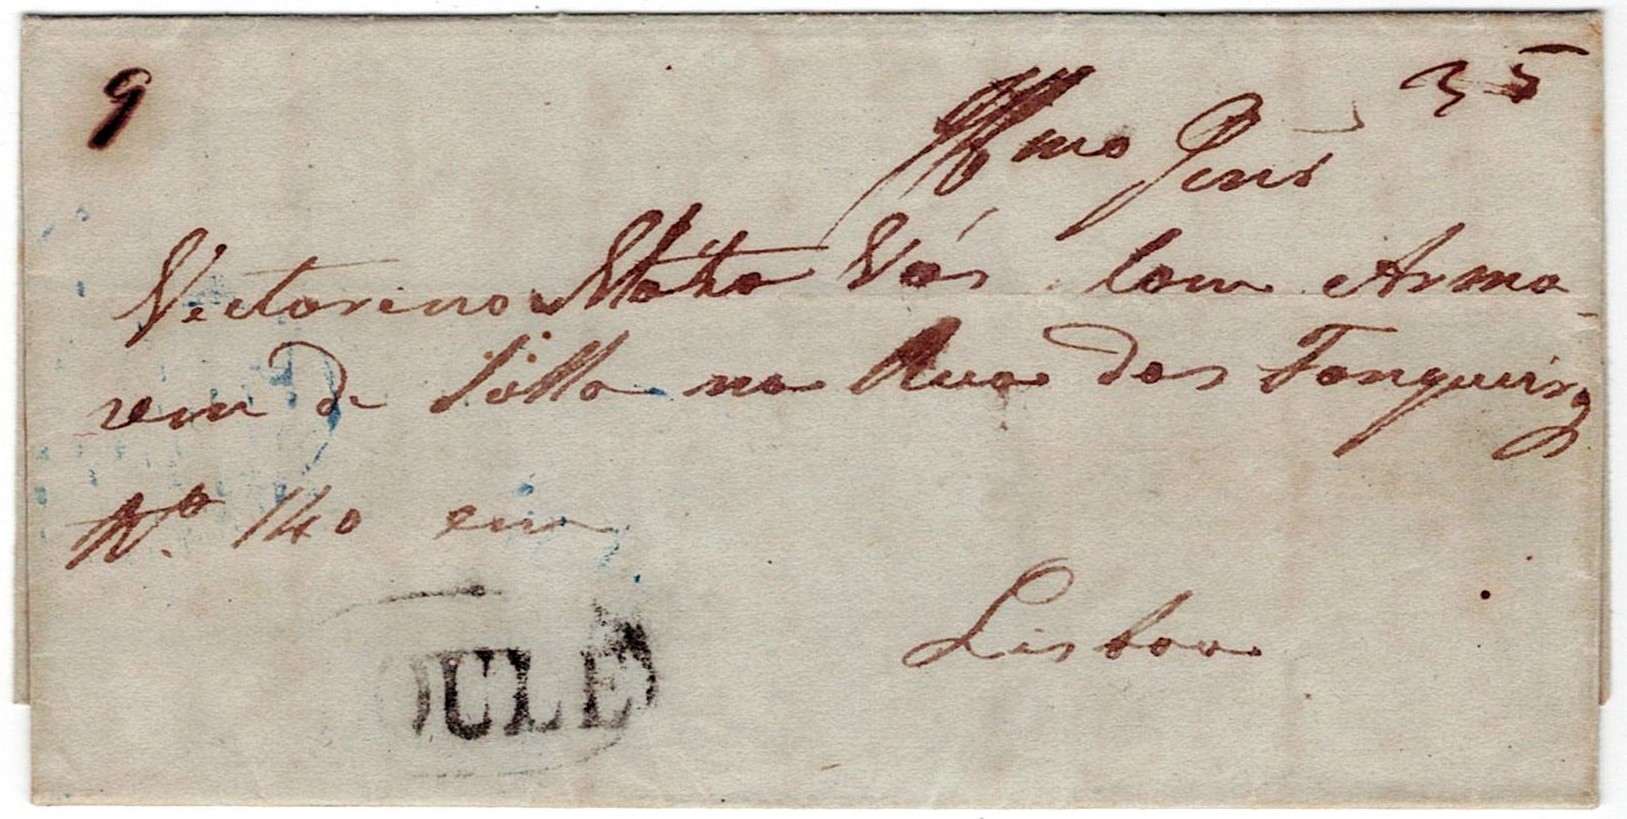 9
35
Illmo Senr
Victorino Matta Vás Com Arma-
zem de Solla na Rua dos Fanqueiros
No. 140 em
Lisboa
OULE